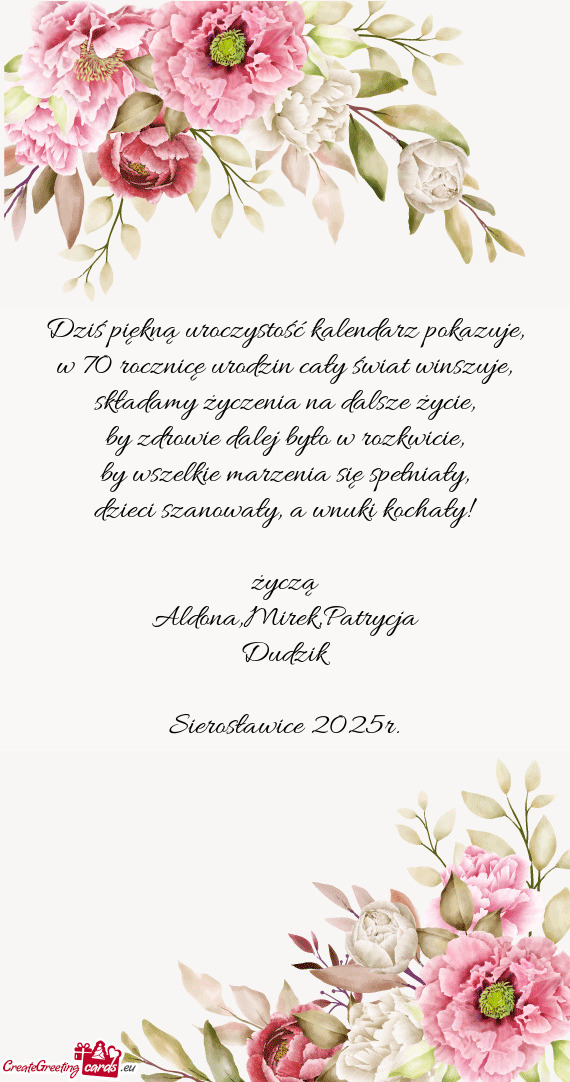 Dziś piękną uroczystość kalendarz pokazuje,
w 70 rocznicę urodzin cały świat winszuje,
składamy życzenia na dalsze życie,
by zdrowie dalej było w rozkwicie,
by wszelkie marzenia się spełniały,
dzieci szanowały, a wnuki kochały!
życzą
Aldona,Mirek,Patrycja
Dudzik
Sierosławice 2025r.
CreateGreeting cards .eu